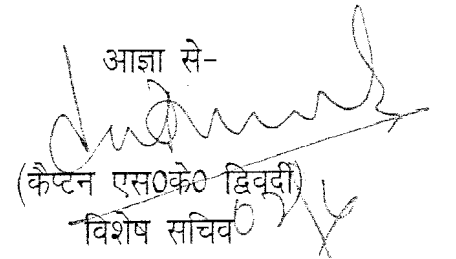 आज्ञा से-
(कैप्टन एस0के0 द्विवेदी)
विशेष सचिव